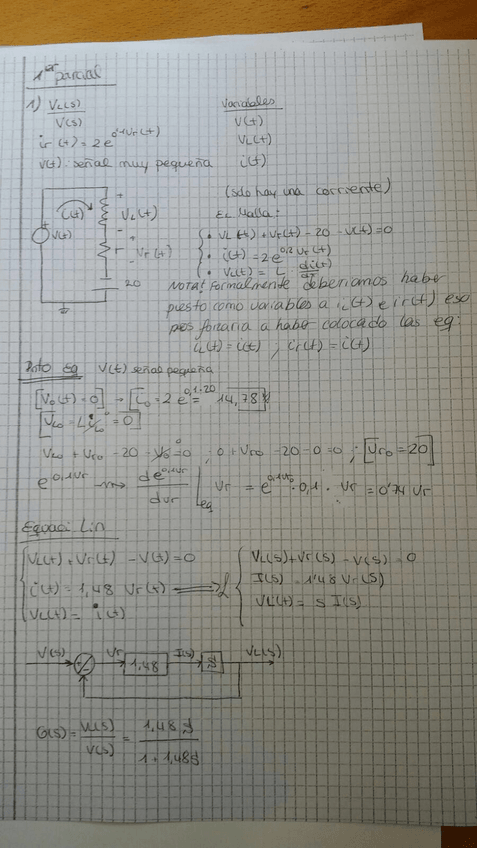 1er parcial
1) VL(s)
V(s)
ir(t) = 2e^0'1Vr(t)
V(t): señal muy pequeña
Variables
V(t)
VL(t)
i(t)
(sólo hay una corriente)
Ec Malla:
• VL(t) + Vr(t) - 20 - V(t) = 0
• i(t) = 2e^0,2Vr(t)
• VL(t) = L · di(t)/dT
i(t)
V(t)
+
VL(t)
-
+
r
Vr(t)
-
20
NOTA! Formalmente deberiamos haber
puesto como variables a iL(t) e ir(t) eso
nos forzaria a haber colocado las eq:
iL(t) = i(t) ; ir(t) = i(t)
Pnto Eq V(t) señal pequeña
[V0(t) = 0] → [i0 = 2 e^0,1·20 = 14,78]
[VL0 = L i0 = 0]
VL0 + Vr0 - 20 - V0 = 0 ; 0 + Vr0 - 20 - 0 = 0 ; [Vr0 = 20]
e^0,1Vr ⟿ de^0,1Vr/dVr |eq Vr = e^0,1Vr0 · 0,1 · Vr = 0'74 Vr
Equaci Lin
VL(t) + Vr(t) - V(t) = 0
i(t) = 1,48 Vr(t) ⟹ L
VL(t) = i(t)
VL(s) + Vr(s) - V(s) = 0
I(s) = 1'48 Vr(s)
VL(t) = s I(s)
V(s) + - Vr 1,48 I(s) s VL(s)
G(s) = VL(s)/V(s) = 1,48 s/1 + 1,48s